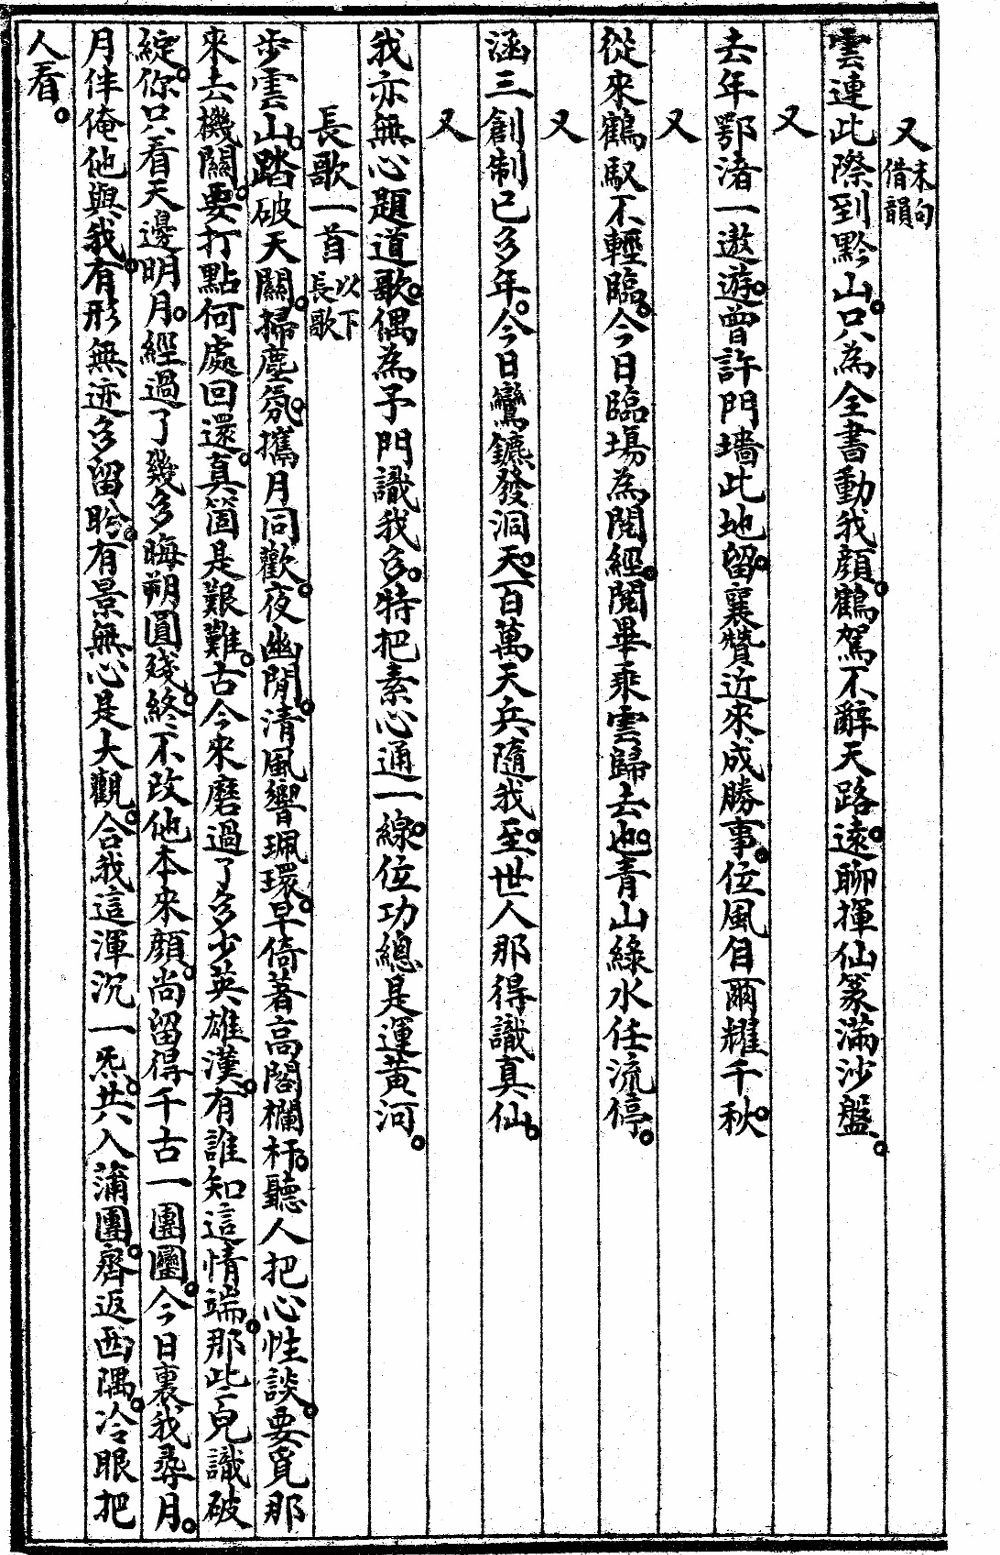 又末句借韻
雲連此際到黔山。只為全書動我顏。鶴駕不辭天路遠。聊揮仙篆滿沙盤。
又
去年鄂渚一遨遊。曾許門墻此地留。襄贊近來成勝事。位風自爾耀千秋。
又
從來鶴馭不輕臨。今日臨場為閱經。閱畢乘雲歸去也。青山綠水任流停。
又
涵三創制已多年。今日鸞鑣發洞天。百萬天兵隨我至。世人那得識真仙。
又
我亦無心題道歌。偶為予門識我多。特把素心通一線。位功總是運黃河。
長歌一首以下長歌
步雲山。踏破天關。掃塵氛。攜月同歡。夜幽閒。清風響珮環。早倚著高閣欄杆。聽人把心性談。要覓那
來去機關。要打點何處回還。真箇是艱難。古今來磨過了多少英雄漢。有誰知這情端。那些兒識破
綻。你只看天邊明月。經過了幾多晦朔圓殘。終不改他本來顏。尚留得千古一團圞。今日裏我尋月。
月伴俺他與我。有形無迹多留盼。有景無心是大觀。合我這渾沉一炁。共入蒲團。齊返西隅。冷眼把
人看。